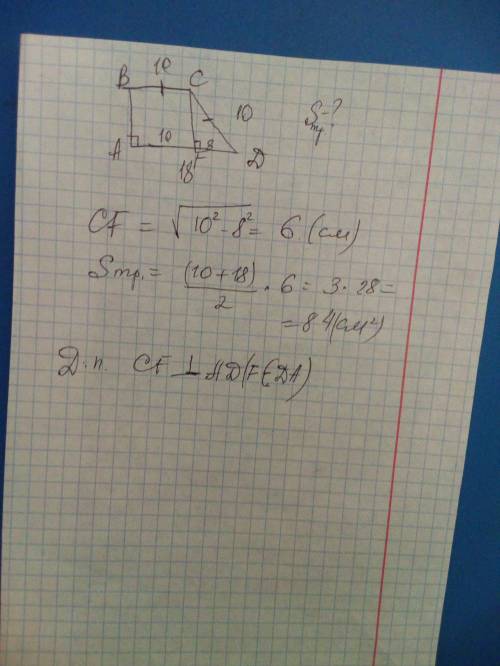 10
B C
10 S тр. - ?
A 10 F 8 D
18
CF = √10² - 8² = 6 (см)
Sтр. = (10 + 18)/2 · 6 = 3 · 28 =
= 84 (см²)
Д.п. CF ⊥ AD (F ∈ DA)